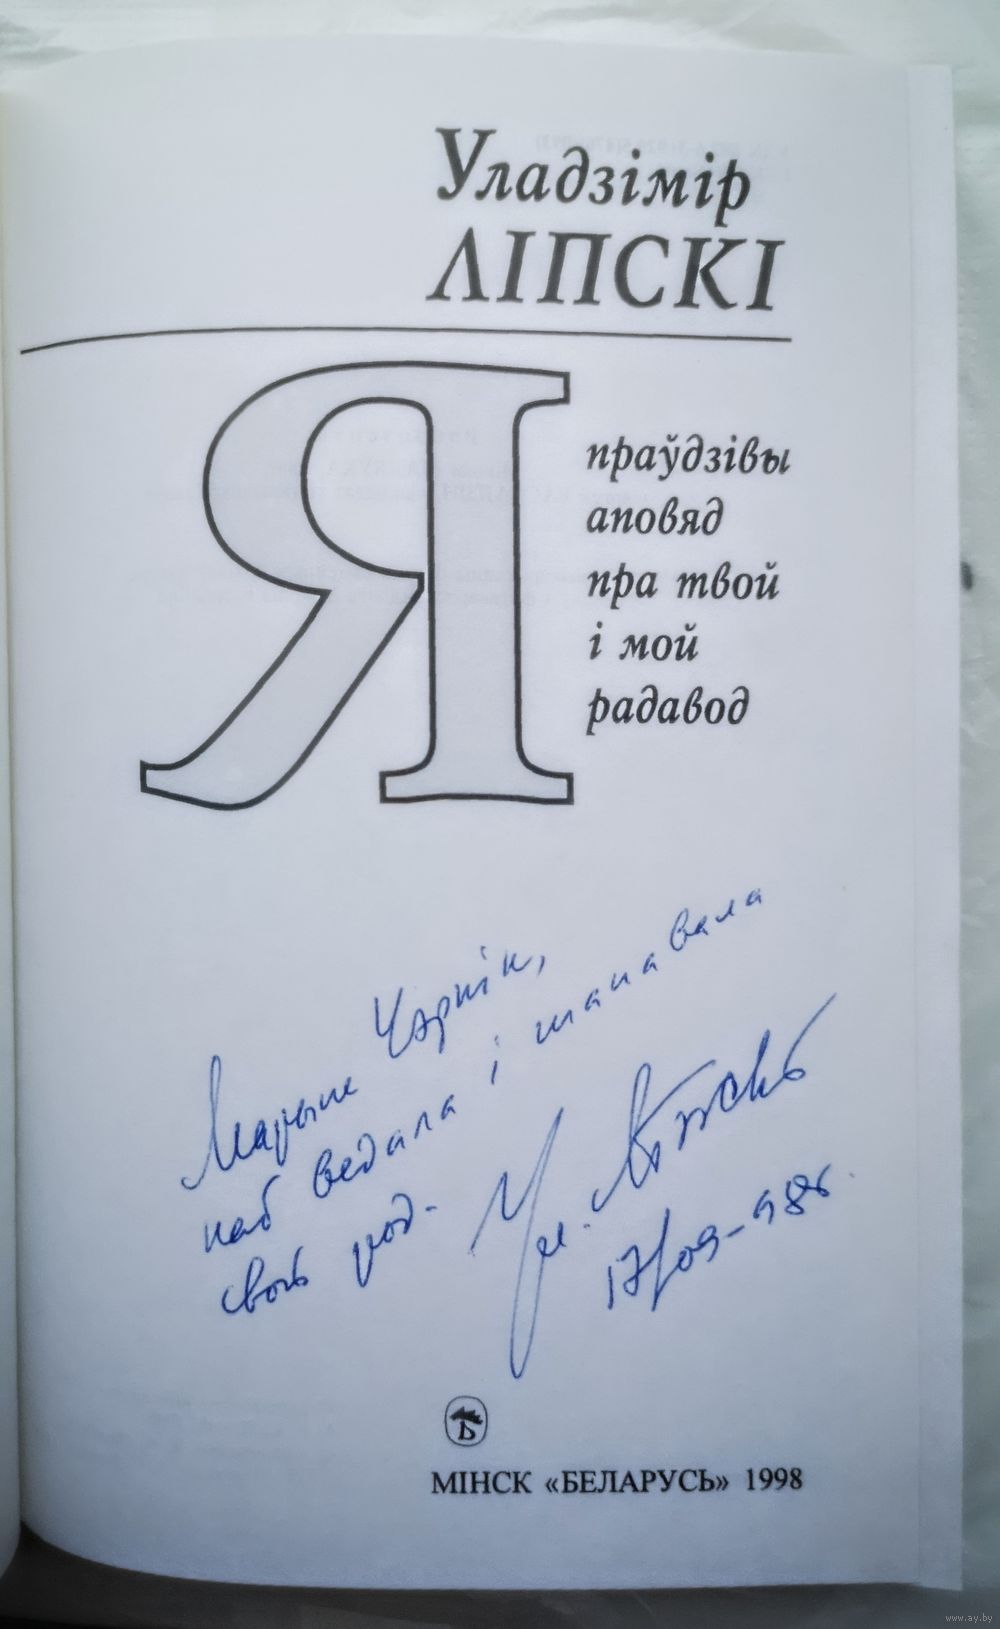 Уладзімір
ЛІПСКІ
Я
праўдзівы
аповяд
пра твой
і мой
радавод
Марыне Чэрнік,
каб ведала і шанавала
свой род.
Ул. Ліпскі
17/09-98г.
Б
МІНСК «БЕЛАРУСЬ» 1998
www.ay.by